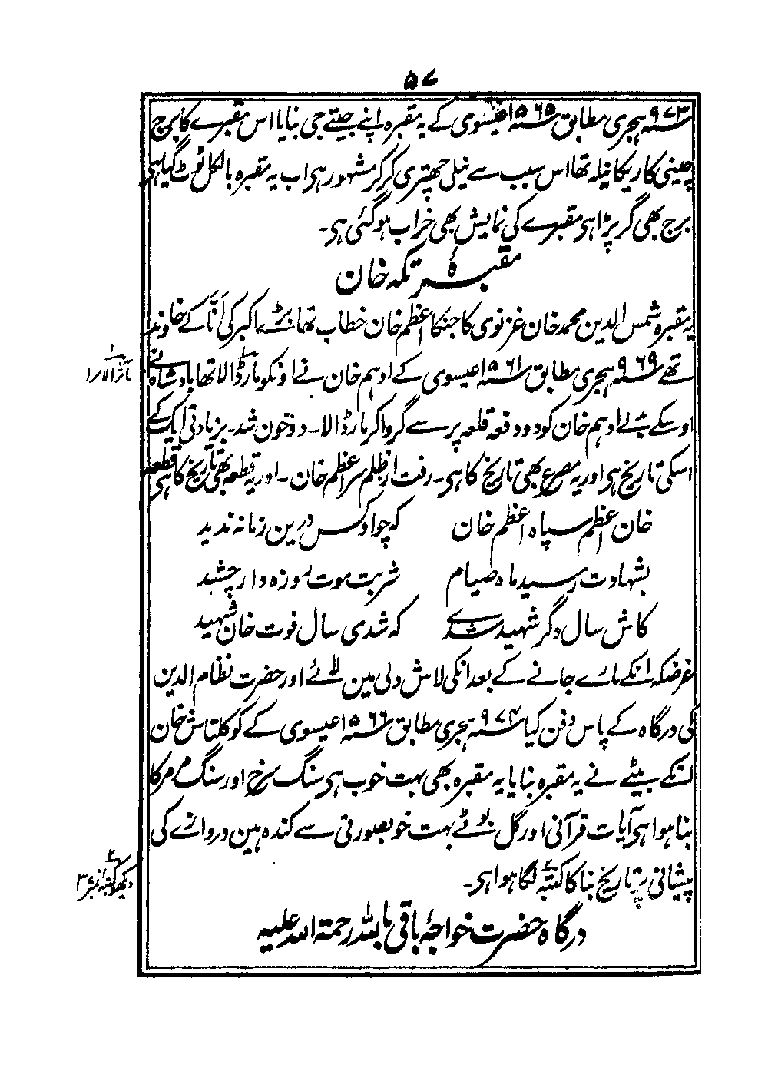 ۵۷
۹۷۳ سنہ ہجری مطابق سنہ ۱۵۶۵ عیسوی کے یہ مقبرہ اپنے جیتے جی بنایا اس مقبرے کا برج
چینی کاریکا نیلہ تھا اس سبب سے نیلی چھتری کر کر مشہور ہی اب یہ مقبرہ بالکل ٹوٹ گیا ہی
برج بھی گر پڑا ہی مقبرے کی نمایش بھی خراب ہو گئی ہی۔
مقبرۂ تکہ خان
یہ مقبرہ شمس الدین محمد خان غزنوی کا جنکا اعظم خان خطاب تھا بڑے اکبر کی اَنَّا کے خاوند
تھے سنہ ۹۶۹ ہجری مطابق سنہ ۱۵۶۱ عیسوی کے ادہم خان نے اونکو مار ڈالا تھا بادشاہ نے
اوسکے بدلے ادہم خان کو دو دفعہ قلعہ پر سے گروا کر مار ڈالا۔ دو خون شد۔ بزیادتی ایک کے
اسکی تاریخ ہی اور یہ مصرع بھی تاریخ کا ہی۔ رفت از ظلم سر اعظم خان۔ اور یہ قطعہ بھی تاریخ کا ہی قطعہ
خان اعظم سپاہ اعظم خان کہ چو او کس درین زمانہ ندید
بشہادت رسید ماہ صیام شربت موت روزہ دار چشید
کاش سال دگر شہید شدے کہ شدی سال فوت خان شہید
غرضکہ انکے مارے جانے کے بعد انکی لاش دلی مین لائے اور حضرت نظام الدین
کی درگاہ کے پاس دفن کیا سنہ ۹۷۴ ہجری مطابق سنہ ۱۵۶۶ عیسوی کے کوکلتاش خان
انکے بیٹے نے یہ مقبرہ بنایا یہ مقبرہ بھی بہت خوب ہی سنگ سرخ اور سنگ مرمر کا
بنا ہوا ہی آیات قرآنی اور گل بوٹے بہت خوبصورتی سے کندہ ہین دروازے کی
پیشانی پر تاریخ بنا کا کتبہ لگا ہوا ہی۔
درگاہ حضرت خواجۂ باقی باللہ رحمۃ اللہ علیہ
مآثر الامرا
دیکھو کتبہ نمبر ۳